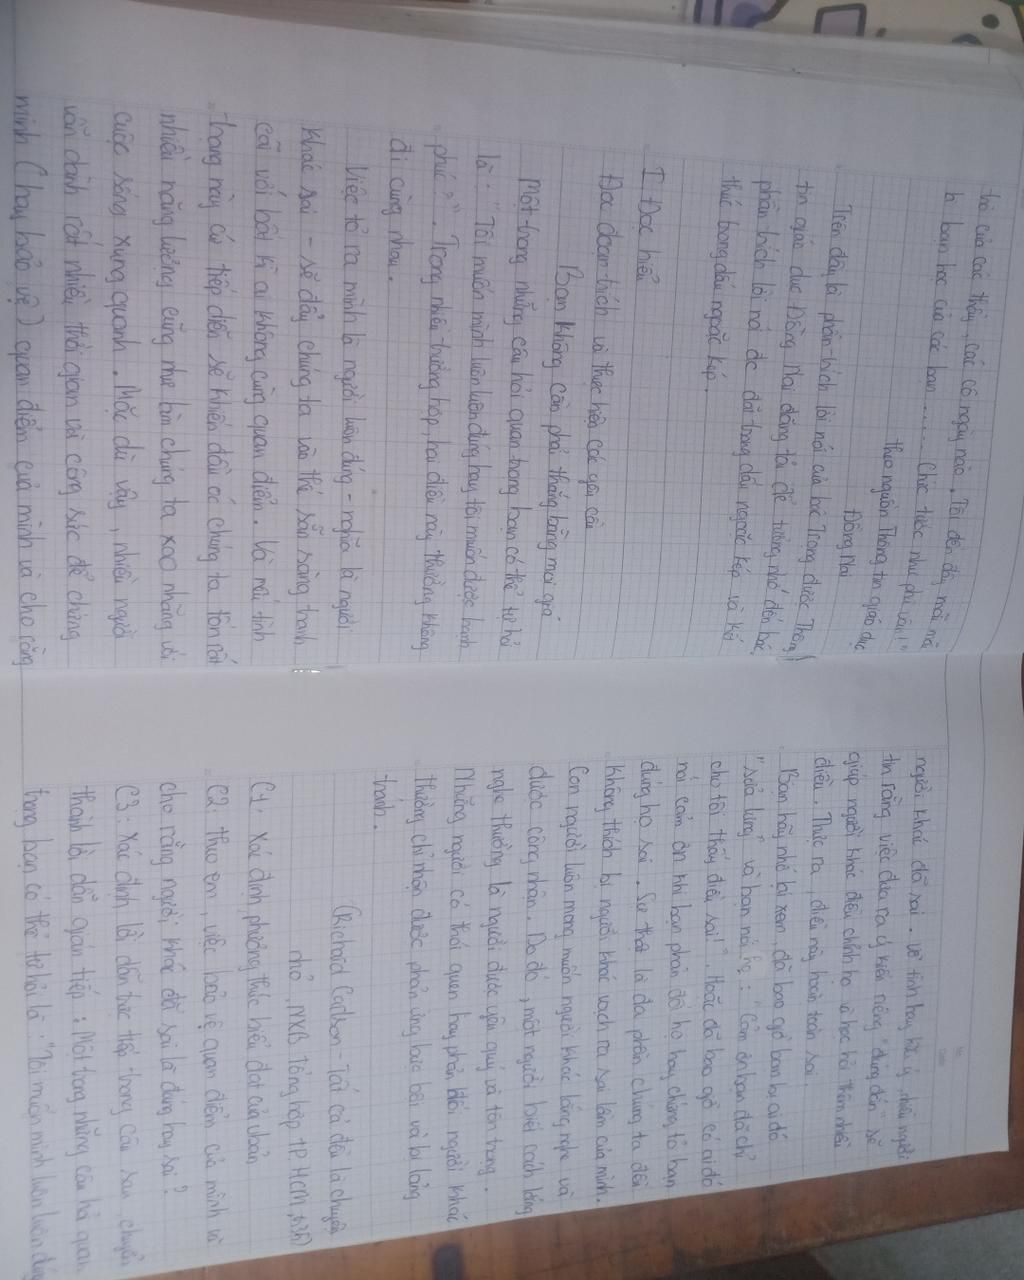 trò của các thầy, các cô ngày nào. Tôi đến đây mãi mãi
là bạn học của các bạn ........ Chức tước như phù vân!"
theo nguồn Thông tin giáo dục
Đồng Nai
Trên đây là phần trích lời nói của bác Trọng được Thông
tin giáo dục Đồng Nai đăng tả để tưởng nhớ đến bác,
phần trích lời nói đc đặt trong dấu ngoặc kép và kết
thúc bằng dấu ngoặc kép.
I Đọc hiểu
Đọc đoạn trích và thực hiện các yêu cầu
Bạn không cần phải thắng bằng mọi giá
Một trong những câu hỏi quan trọng bạn có thể tự hỏi
là: "Tôi muốn mình luôn luôn đúng hay tôi muốn được hạnh
phúc?". Trong nhiều trường hợp, hai điều này thường không
đi cùng nhau.
Việc tỏ ra mình là người luôn đúng - nghĩa là người
khác sai - sẽ đẩy chúng ta vào thế sẵn sàng tranh
cãi với bất kì ai không cùng quan điểm. Và nếu tình
trạng này cứ tiếp diễn sẽ khiến đầu óc chúng ta tốn rất
nhiều năng lượng cũng như làm chúng ta xao nhãng với
cuộc sống xung quanh. Mặc dù vậy, nhiều người
vẫn dành rất nhiều thời gian và công sức để chứng
minh (hay bảo vệ) quan điểm của mình và cho rằng
người khác đã sai. Vô tình hay hữu ý, nhiều người
tin rằng việc đưa ra ý kiến riêng "đúng đắn" sẽ
giúp người khác điều chỉnh họ và học hỏi thêm nhiều
điều. Thực ra, điều này hoàn toàn sai.
Bạn hãy nhớ lại xem, đã bao giờ bạn bị ai đó
"sửa lưng" và bạn nói họ: "Cảm ơn bạn đã chỉ
cho tôi thấy điều sai!". Hoặc đã bao giờ có ai đó
nói cảm ơn khi bạn phản đối họ hay chứng tỏ bạn
đúng họ sai. Sự thật là đa phần chúng ta đều
không thích bị người khác vạch ra sai lầm của mình.
Con người luôn mong muốn người khác lắng nghe và
được công nhận. Do đó, một người biết cách lắng
nghe thường là người được yêu quý và tôn trọng.
Những người có thói quen hay phản đối người khác
thường chỉ nhận được phản ứng bực bội và bị lảng
tránh.
(Richard Carlson - Tất cả đều là chuyện
nhỏ, NXB Tổng hợp TP HCM,
C1: Xác định phương thức biểu đạt của vbản
C2: theo em, việc bảo vệ quan điểm của mình và
cho rằng người khác đã sai là đúng hay sai?
C3: Xác định lời dẫn trực tiếp trong câu sau, chuyển
thành lời dẫn gián tiếp: Một trong những câu hỏi quan
trọng bạn có thể tự hỏi là: "Tôi muốn mình luôn luôn đúng